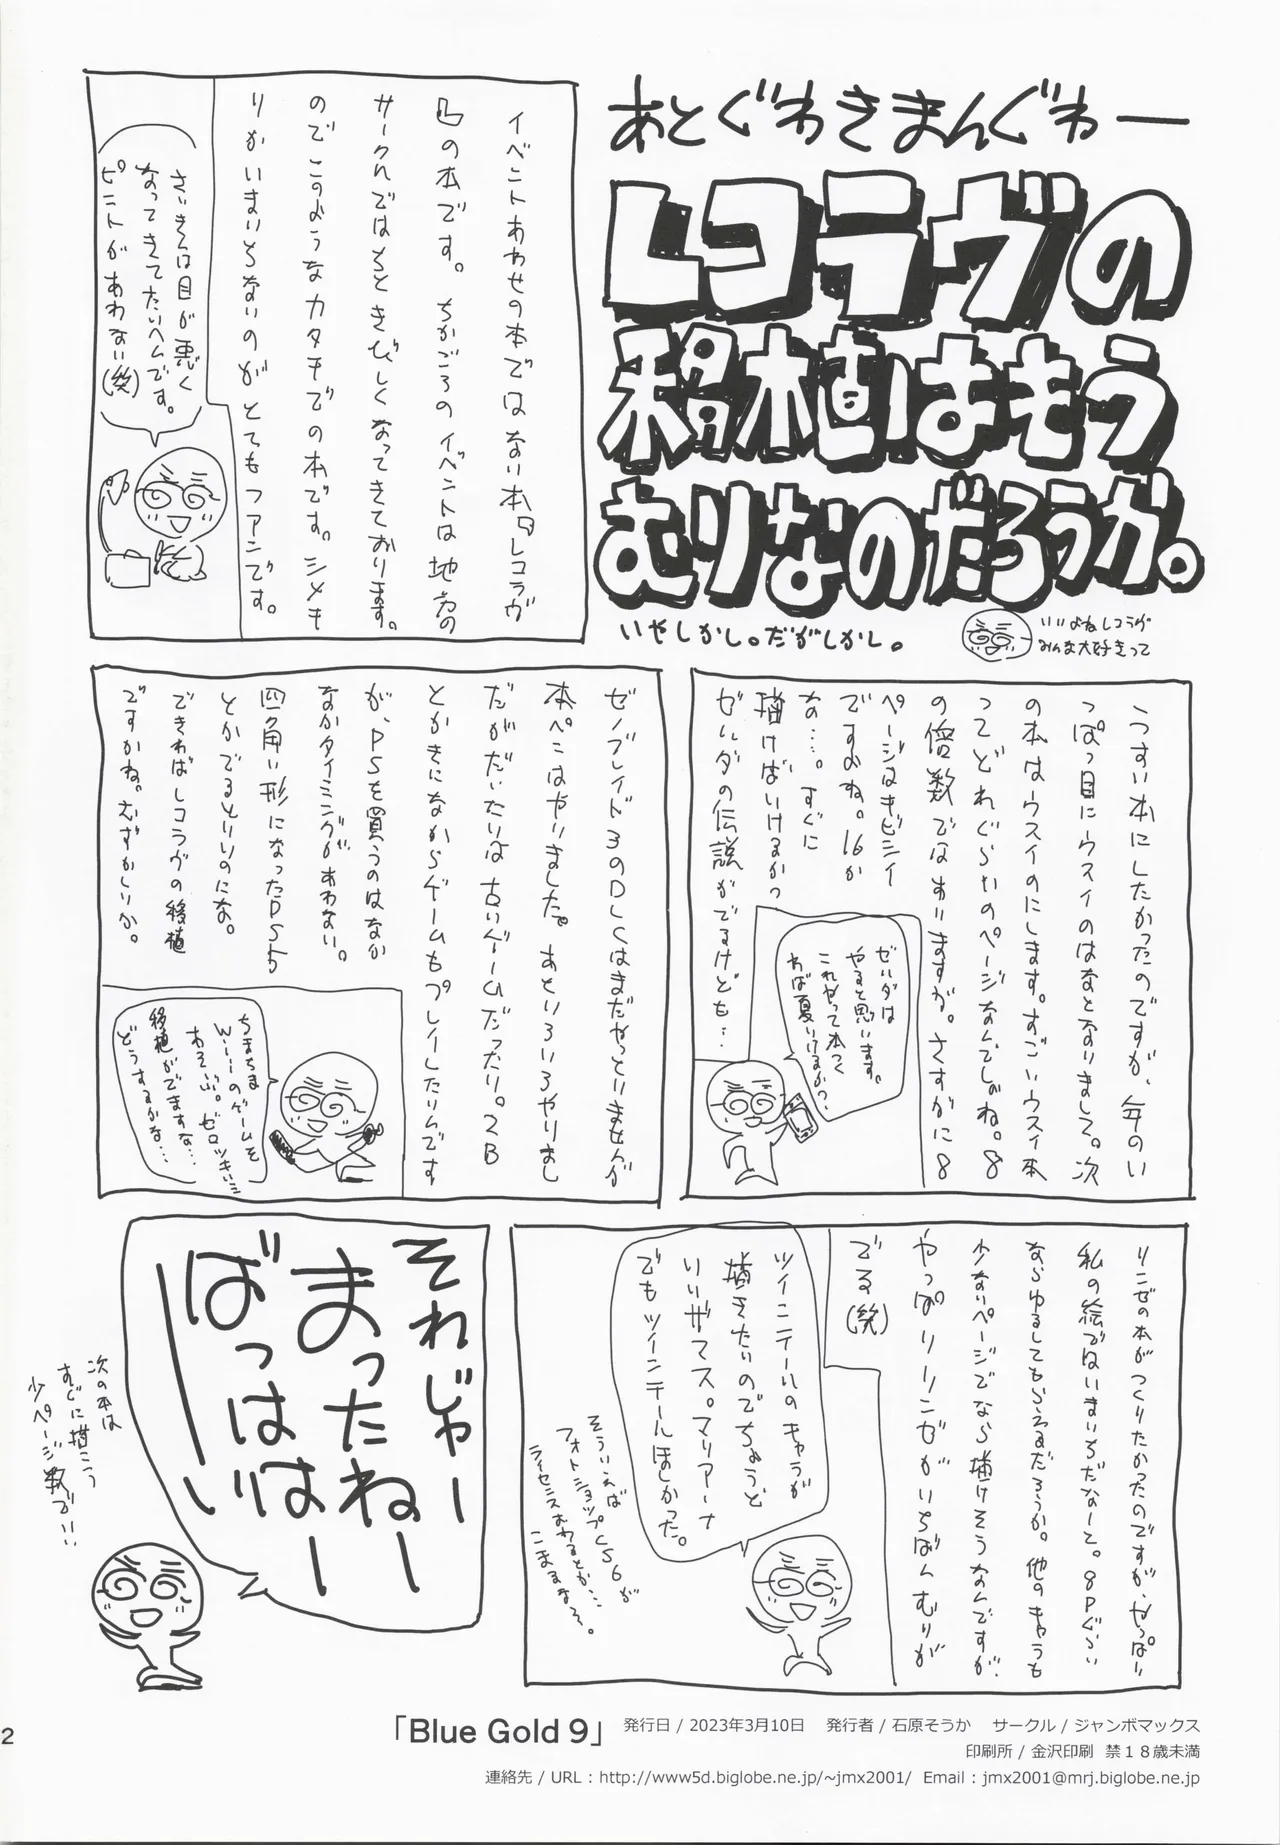 あとぐわきまんぐわー
レコラヴの
移植はもう
むりなのだろうか。
いやしかし。だがしかし。
いいよねレコラヴ
みんな大好きって
イベントあわせの本ではない本日レコラヴ
凸の本です。ちかごろのイベントは地方の
サークルではちときびしくなってきております。
のでこのようなカタチでの本です。シメキ
りがいまいちないのがとてもフアンです。
さいきんは目が悪く
なってきてたいへんです。
ピントがあわない(笑)
うすい本にしたかったのですが、年のい
っぱつ目にウスイのはなとなりまして。次
の本はウスイのにします。すごいウスイ本
ってどれぐらいのページなんでしょね。8
の倍数ではありますが。さすがに8
ページはキビシイ
ですよね。16か
な…。すぐに
描けばいけるかっ
ゼルダの伝説がでるけども…
ゼルダは
やると思います。
これやって本つく
れば夏いけるかっ…
ゼノブレイド3のDLCはまだやっとりませんが
本ペこはやりました。あといろいろやりまし
だがだいたいは古いゲームだったり。2B
とかきになからゲームもプレイしたりんです
が、PSを買うのはなか
なかタイミングがあわない。
四角い形になったPS5
とかでるといいのにな。
できればレコラヴの移植
ですかね。むずかしいか。
ちまちま
Wiiのゲームを
あそぶ。ゼロツキいミ
移植がでますな…
どうするかな…
リンゼの本がつくりたかったのですが、やっぱり
私の絵ではいまいちだなーと。8Pぐらい
ならゆるしてもらえるだろうか。他のキャラも
少ないページでなら描けそうなんですが、
やっぱりリンゼがいちばんむりが
でる(笑)
ツインテールのキャラが
描きたいのでちょうど
いいザマス。マリアーナ
でもツインテールほしかった。
そういえば
フォトショップCS6が
ライセンスおわるとか…
こまるなぁ。
それじゃー
まったねー
ばっはは〜い
次の本は
すぐに描こう
少ページ数でい…
「Blue Gold 9」 発行日 / 2023年3月10日 発行者 / 石原そうか サークル / ジャンボマックス
印刷所 / 金沢印刷 禁18歳未満
連絡先 / URL : http://www5d.biglobe.ne.jp/~jmx2001/ Email : jmx2001@mrj.biglobe.ne.jp
2